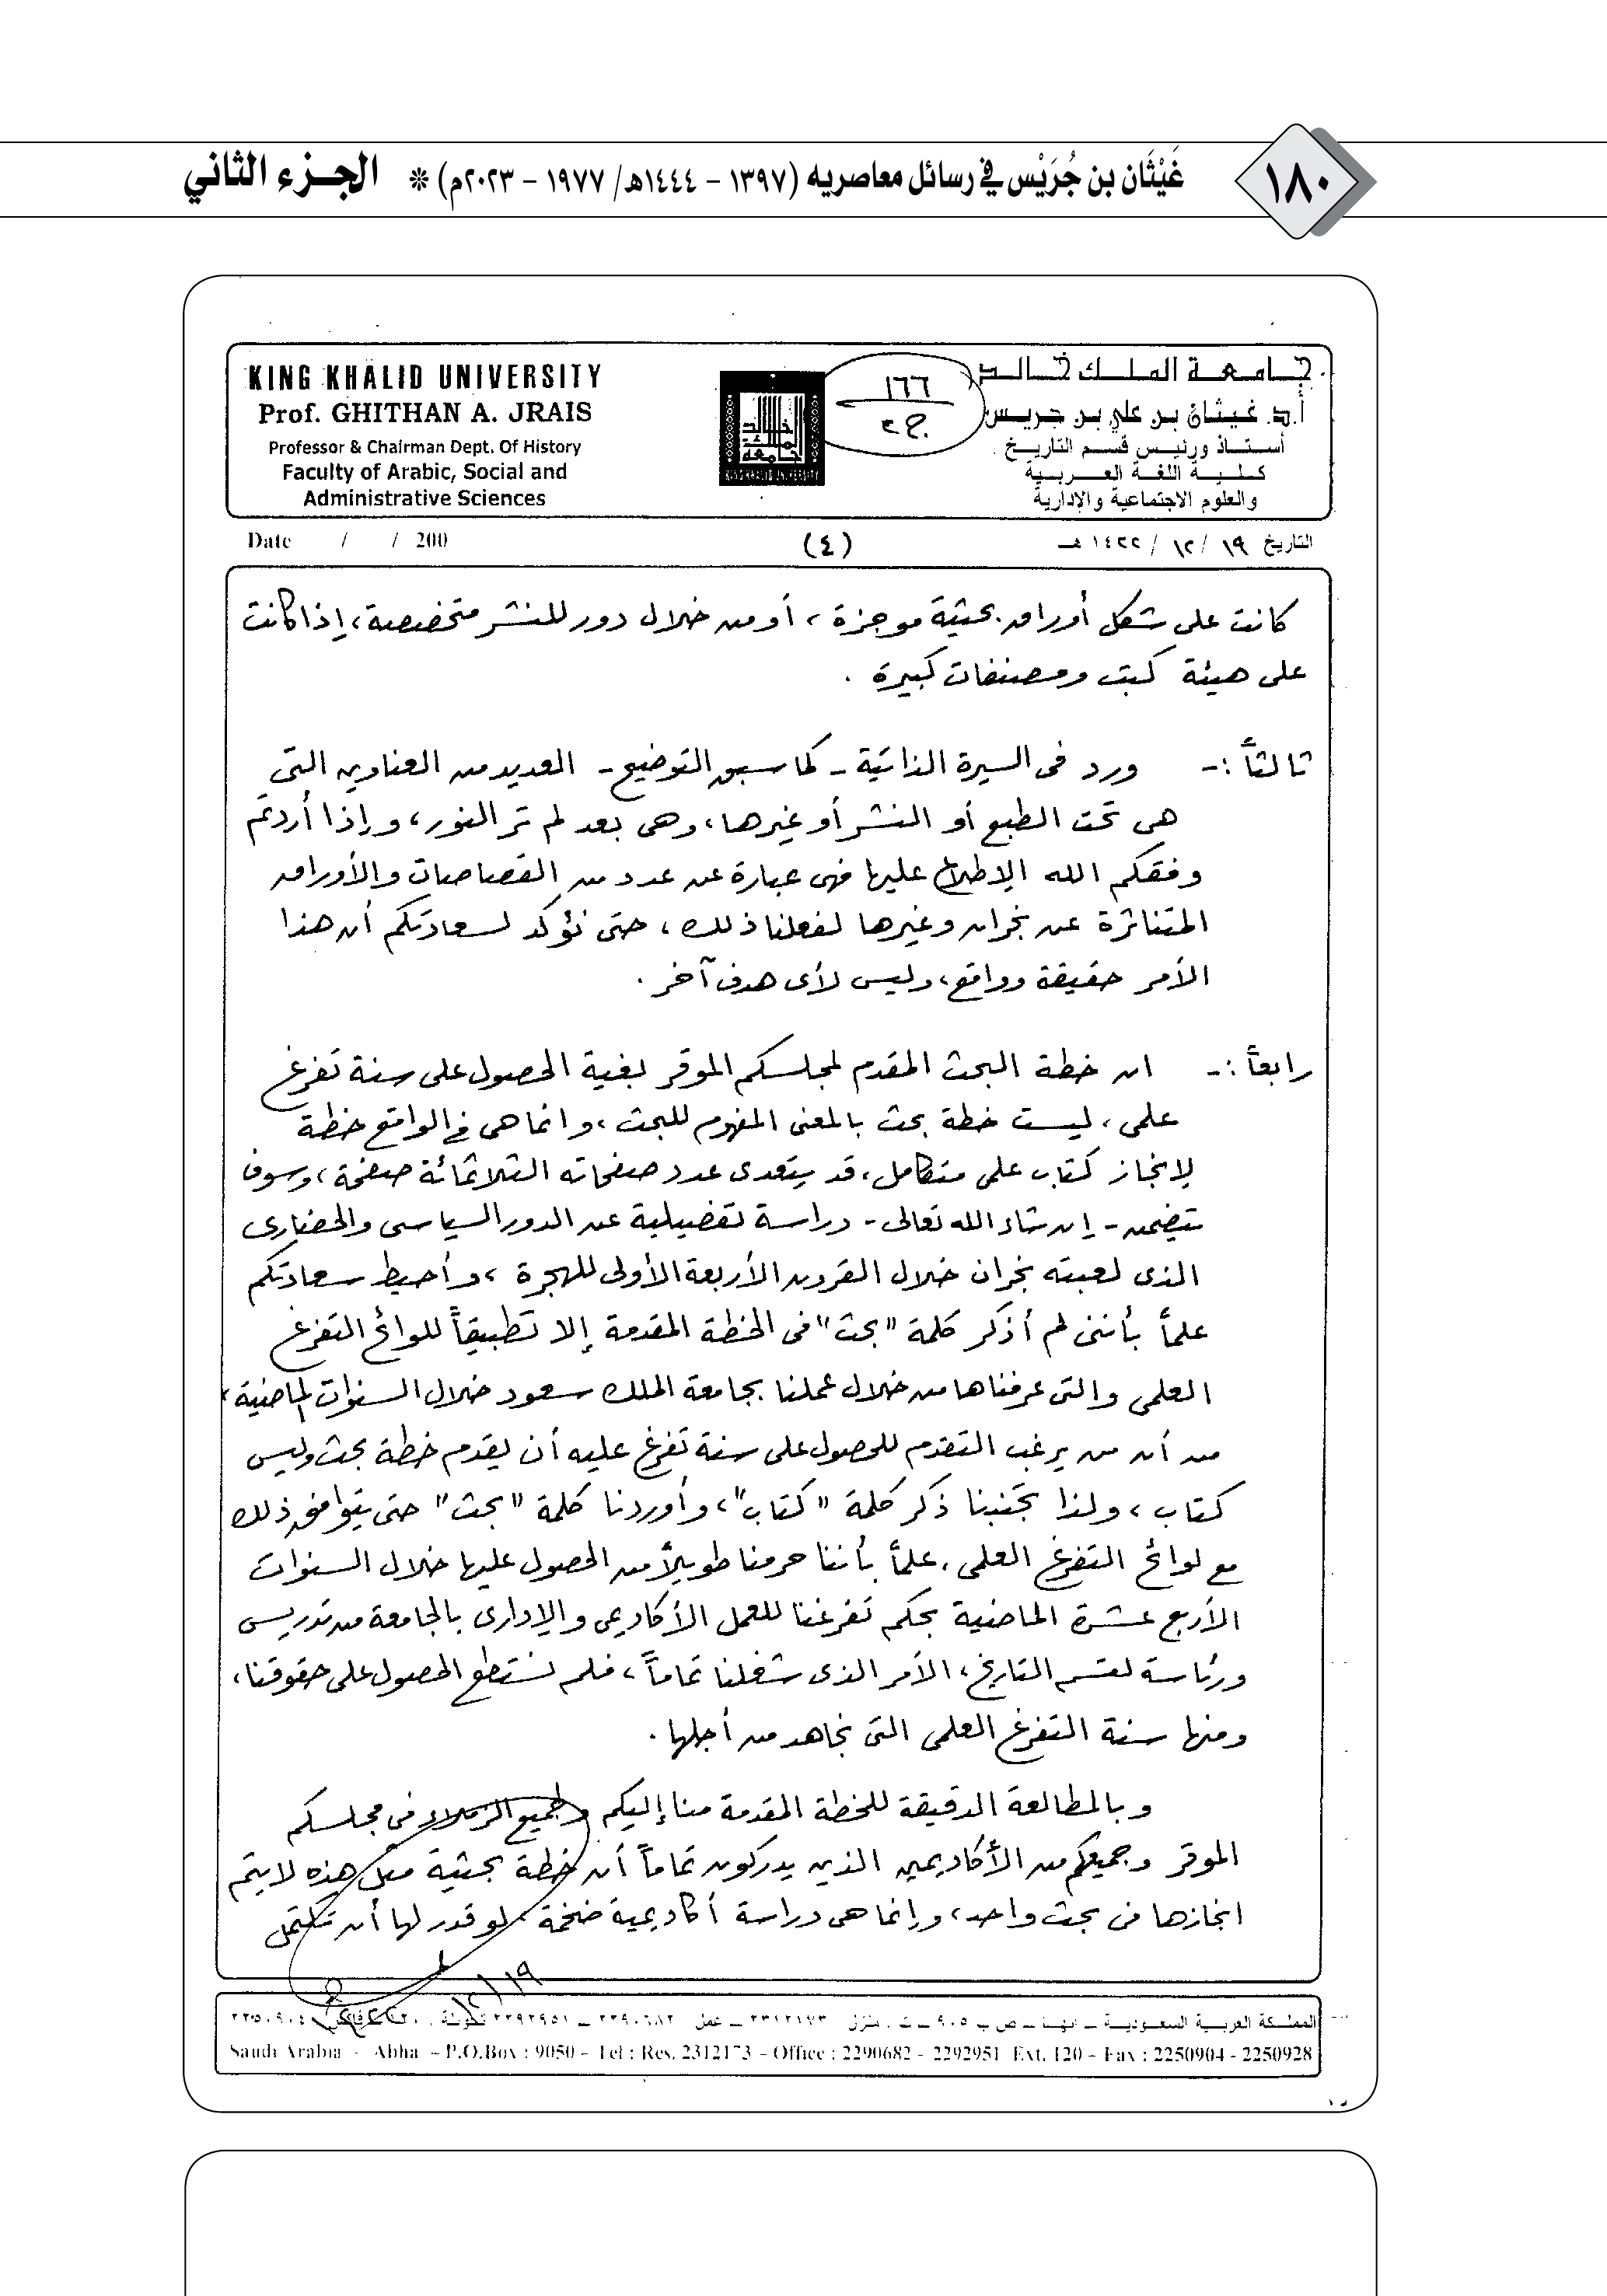 ١٨٠
غَيْثَان بن جُرَيْس في رسائل معاصريه (١٣٩٧ - ١٤٤٤هـ/ ١٩٧٧ - ٢٠٢٣م) * الجزء الثاني
جامعة الملك خالد
أ.د. غيثان بن علي بن جريس
أستاذ ورئيس قسم التاريخ
كلية اللغة العربية
والعلوم الاجتماعية والإدارية
١٦٦
ج٢
KING KHALID UNIVERSITY
Prof. GHITHAN A. JRAIS
Professor & Chairman Dept. Of History
Faculty of Arabic, Social and
Administrative Sciences
التاريخ ١٩ / ١٢ / ١٤٢٢ هـ
(٤)
Date / / 200
كانت على شكل أوراق بحثية موجزة ، أو من خلال دور للنشر متخصصة، إذا كانت
على هيئة كتب ومصنفات كبيرة .
ثالثاً :- ورد فى السيرة الذاتية - كما سبق التوضيح - العديد من العناوين التى
هى تحت الطبع أو النشر أو غيرها، وهى بعد لم تر النور، وإذا أردتم
وفقكم الله الإطلاع عليها فهى عبارة عن عدد من القصاصات والأوراق
المتناثرة عن نجران وغيرها لفعلنا ذلك ، حتى نؤكد لسعادتكم أن هذا
الأمر حقيقة وواقع، وليس لأى هدف آخر .
رابعاً :- ان خطة البحث المقدم لمجلسكم الموقر بغية الحصول على سنة تفرغ
علمى ، ليست خطة بحث بالمعنى المفهوم للبحث ، وانما هى فى الواقع خطة
لإنجاز كتاب علمى متكامل، قد يتعدى عدد صفحاته الثلاثمائة صفحة ، وسوف
يتضمن - إن شاء الله تعالى - دراسة تفصيلية عن الدور السياسى والحضارى
الذى لعبته نجران خلال القرون الأربعة الأولى للهجرة ، وأحيط سعادتكم
علماً بأننى لم أذكر كلمة "بحث" فى الخطة المقدمة إلا تطبيقاً للوائح التفرغ
العلمى والتى عرفناها من خلال عملنا بجامعة الملك سعود خلال السنوات الماضية ،
من أن من يرغب التقدم للحصول على سنة تفرغ عليه أن يقدم خطة بحث وليس
كتاب ، ولذا تجنبنا ذكر كلمة "كتاب"، وأوردنا كلمة "بحث" حتى يتوافق ذلك
مع لوائح التفرغ العلمى ، علماً بأننا حرمنا طويلاً من الحصول عليها خلال السنوات
الأربع عشرة الماضية بحكم تفرغنا للعمل الأكاديمى والإدارى بالجامعة من تدريس
ورئاسة لقسم التاريخ ، الأمر الذى شغلنا تماماً ، فلم نستطع الحصول على حقوقنا ،
ومنها سنة التفرغ العلمى التى نجاهد من أجلها .
وبالمطالعة الدقيقة للخطة المقدمة منا إليكم ولجميع الزملاء فى مجلسكم
الموقر وجميعكم من الأكاديمين الذين يدركون تماماً أن خطة بحثية مثل هذه لا يتم
انجازها فى بحث واحد ، وإنما هى دراسة أكاديمية ضخمة لو قدر لها أن تكتمل
١٢/١٩
المملكة العربية السعودية – ابها – ص ب ٩٠٥ – ت . منزل ٢٣١٢١٧٣ – عمل ٢٢٩٠٦٨٢ – ٢٢٩٢٩٥١
Saudi Arabia - Abha - P.O.Box : 9050 - Tel : Res. 2312173 - Office : 2290682 - 2292951 Ext. 120 - Fax : 2250904 - 2250928